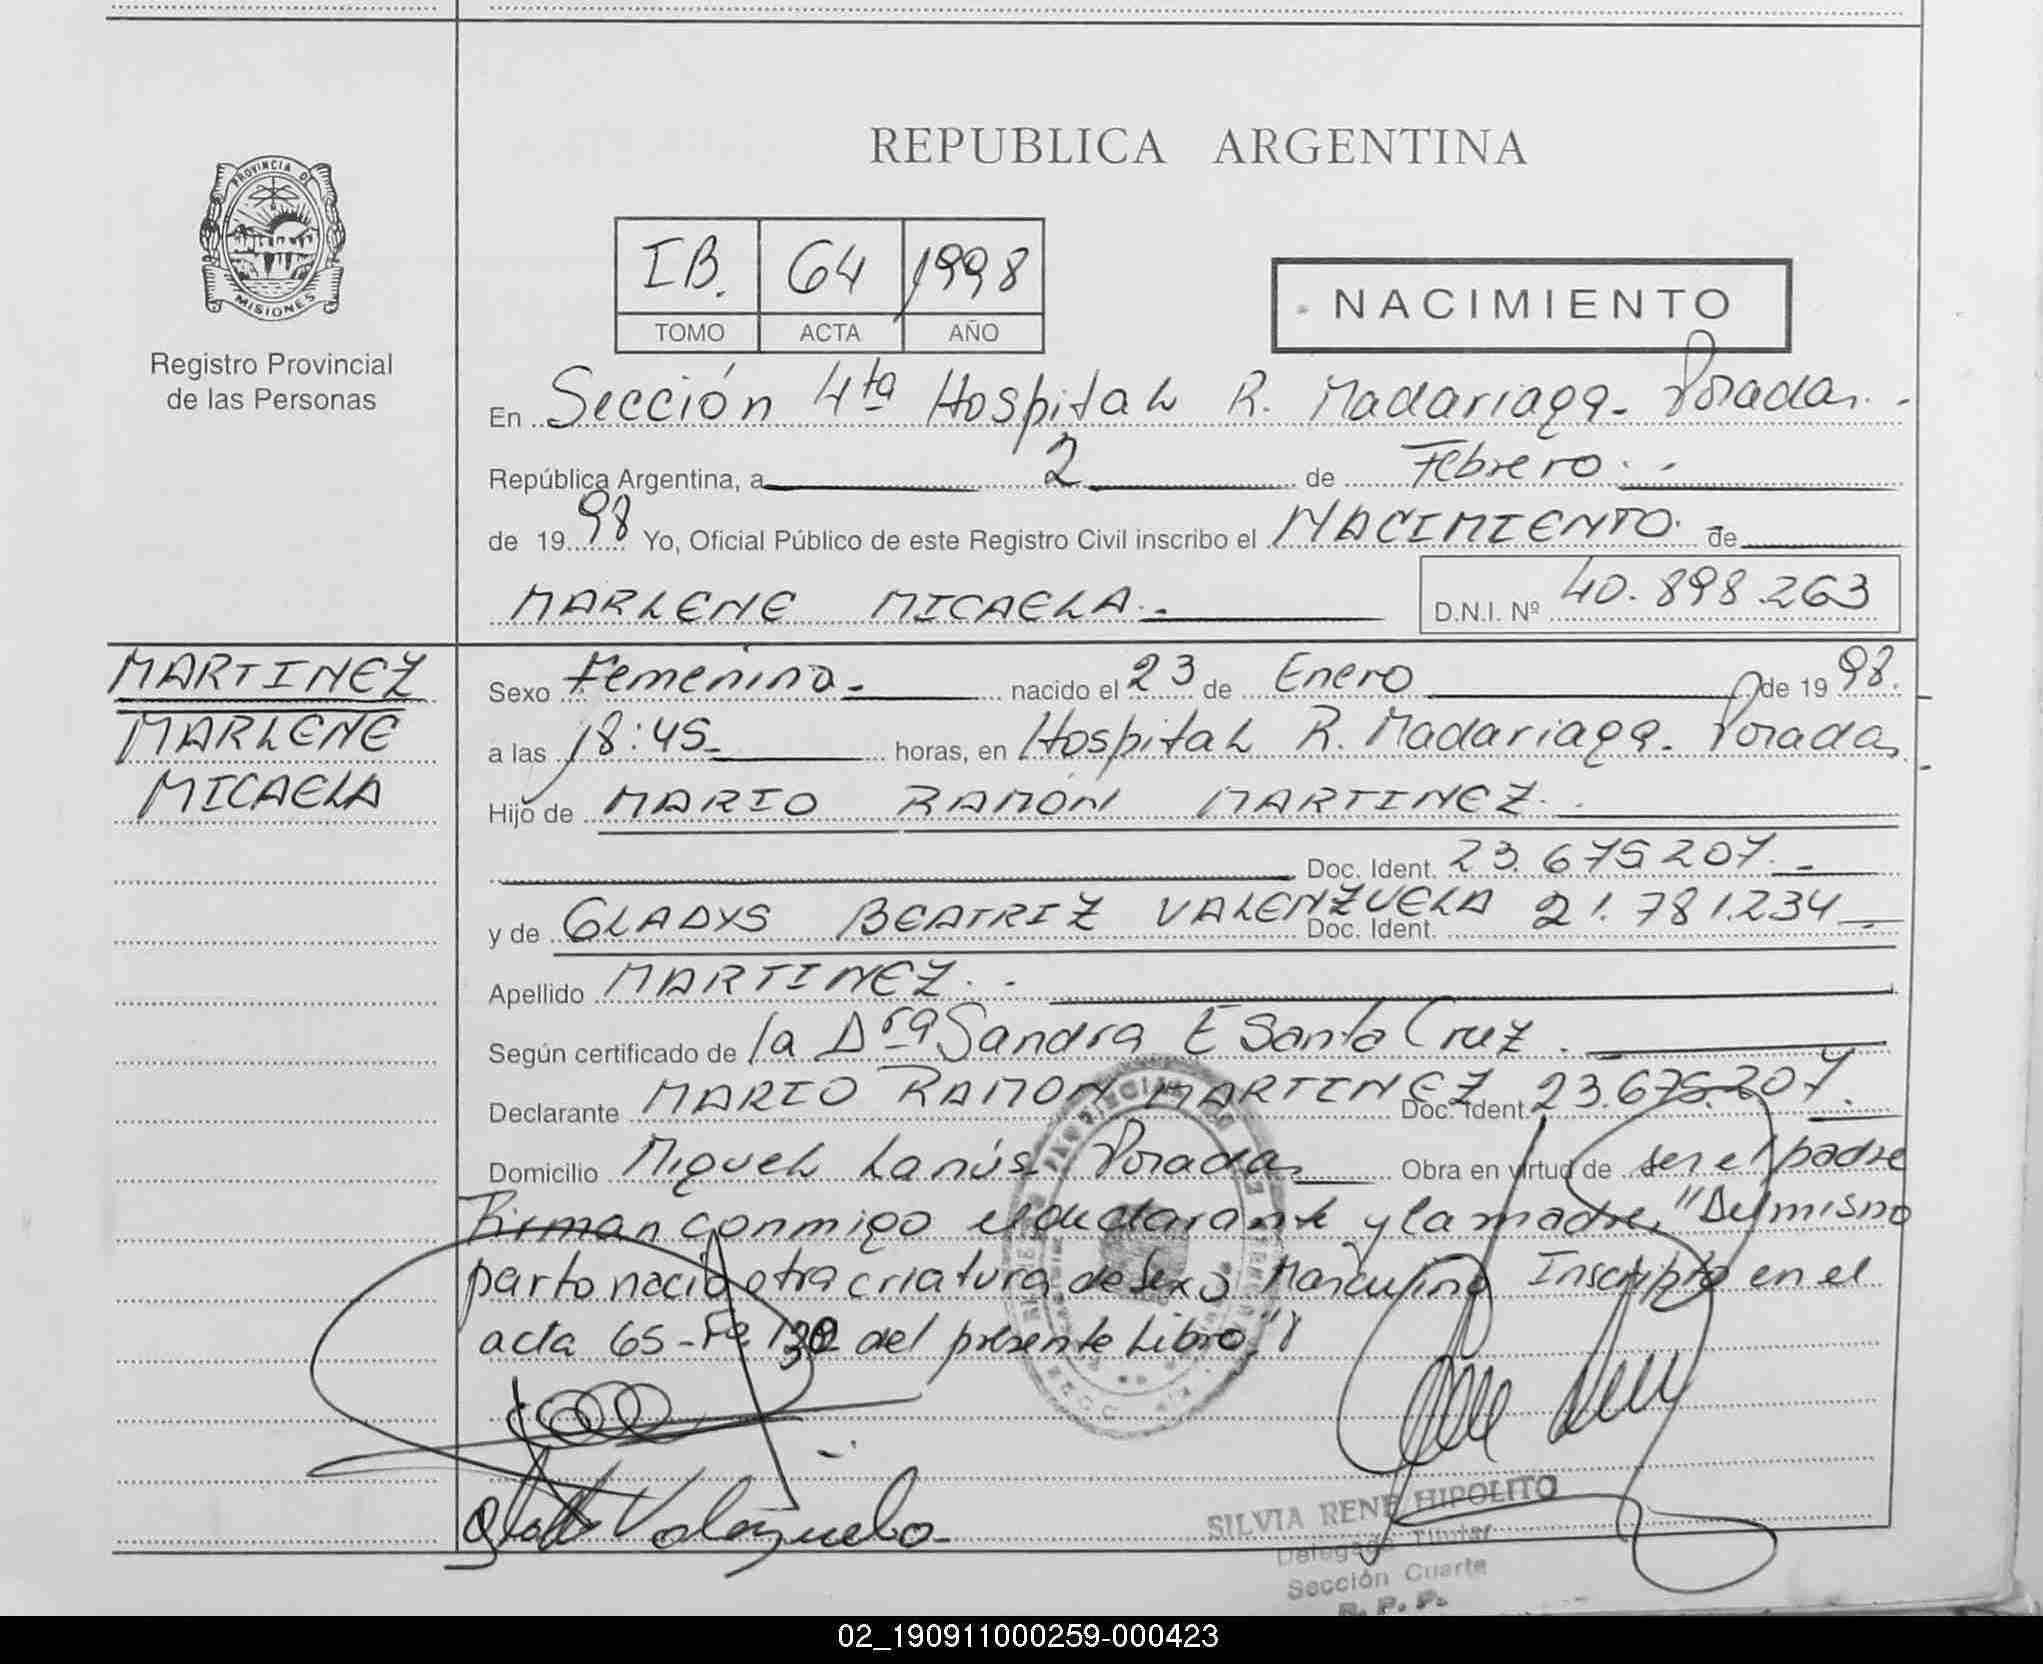 PROVINCIA DE
MISIONES
Registro Provincial
de las Personas
REPUBLICA ARGENTINA
IB. 64 1998
TOMO ACTA AÑO
NACIMIENTO
En Sección 4ta Hospital R. Madariaga. Posadas.-
República Argentina, a 2 de Febrero.-
de 1998 Yo, Oficial Público de este Registro Civil inscribo el NACIMIENTO. de
MARLENE MICAELA.- D.N.I. Nº 40.898.263
MARTINEZ
MARLENE
MICAELA
Sexo Femenino.- nacido el 23 de Enero de 1998.
a las 18:45.- horas, en Hospital R. Madariaga. Posadas
Hijo de MARIO RAMÓN MARTINEZ.-
Doc. Ident. 23.675.207.-
y de GLADYS BEATRIZ VALENZUELA Doc. Ident. 21.781.234.-
Apellido MARTINEZ.-
Según certificado de la Dra Sandra E Santa Cruz.
Declarante MARIO RAMON MARTINEZ Doc. Ident. 23.675.207.
Domicilio Miguel Lanús. Posadas Obra en virtud de ser el padre
Firman conmigo el declarante y la madre, "Del mismo
parto nació otra criatura de sexo Masculino Inscripto en el
acta 65- Fº del presente Libro"
Gladis Valenzuela
SILVIA RENE HIPOLITO
Delegada Titular
Sección Cuarta
R. P. P.
02_190911000259-000423